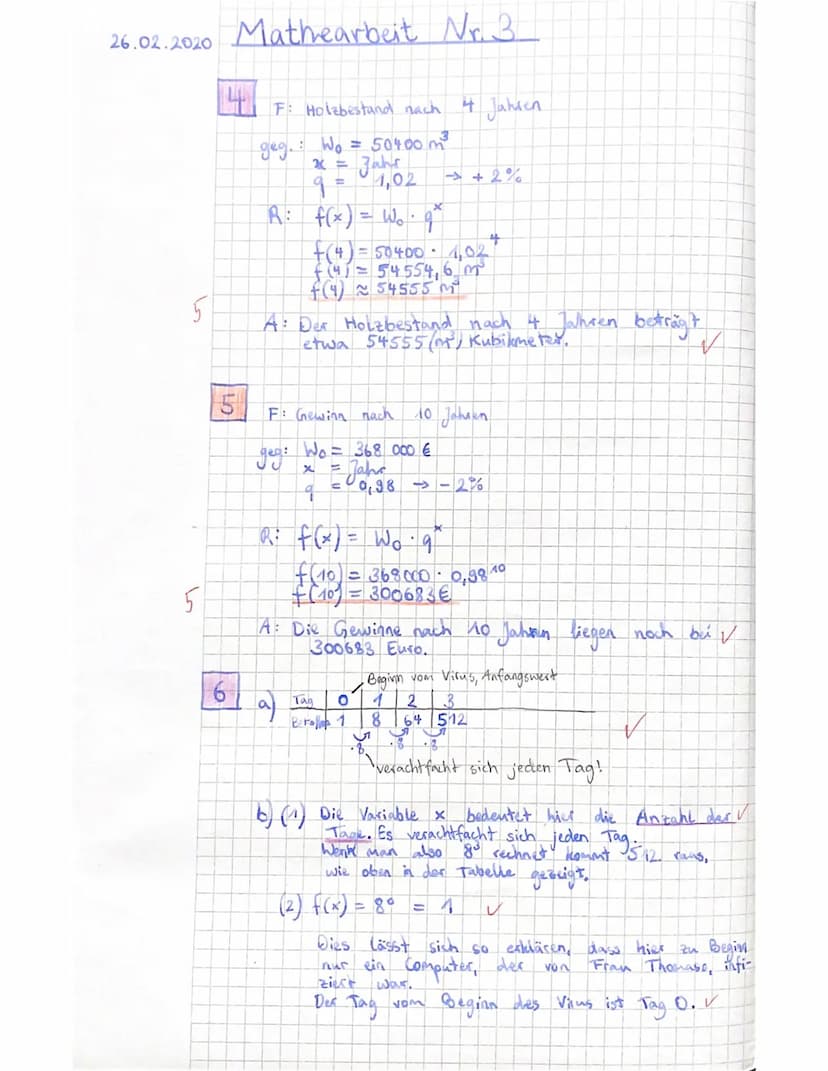 26.02.2020 Mathearbeit Nr. 3
4 F: Holzbestand nach 4 Jahren
geg.: W₀ = 50400 m³
x = Jahr
q = 1,02 → + 2%
R: f(x) = W₀ · qˣ
f(4) = 50400 · 1,02⁴
f(4) = 54554,6 m³
f(4) ≈ 54555 m³
5
A: Der Holzbestand nach 4 Jahren beträgt
etwa 54555 (m³) Kubikmeter. ✓
5 F: Gewinn nach 10 Jahren
geg: W₀ = 368 000 €
x = Jahr
q = 0,98 → - 2%
R: f(x) = W₀ · qˣ
f(10) = 368000 · 0,98¹⁰
f(10) = 300683€
5
A: Die Gewinne nach 10 Jahren liegen noch bei ✓
300683 Euro.
Beginn vom Virus, Anfangswert
6 a) Tag 0 1 2 3
1 8 64 512 ✓
·8 ·8 ·8
verachtfacht sich jeden Tag!
b) (1) Die Variable x bedeutet hier die Anzahl der ✓
Tage. Es verachtfacht sich jeden Tag.
Wenn man also 8³ rechnet kommt 512 raus,
wie oben in der Tabelle gezeigt.
(2) f(x) = 8⁰ = 1 ✓
Dies lässt sich so erklären, dass hier zu Beginn
nur ein Computer, der von Frau Thomass, infi-
ziert war.
Der Tag vom Beginn des Virus ist Tag 0. ✓